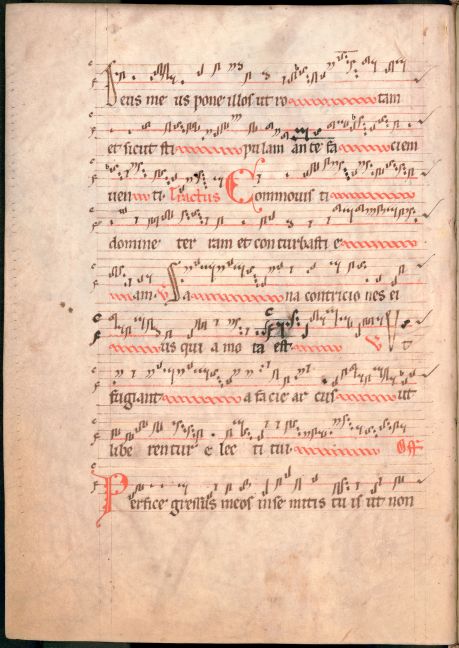 Deus me us pone illos ut ro tam
et sicut sti pulam an te fa ciem
uen ti. Tractus Commouis ti
domine ter ram et con turbasti e
am. V Sa na contricio nes ei
us qui a mo ta est. V Ut
fugiant a facie ar cus ut
libe rentur e lec ti tui
Perfice gressus meos in se mitis tu is ut non